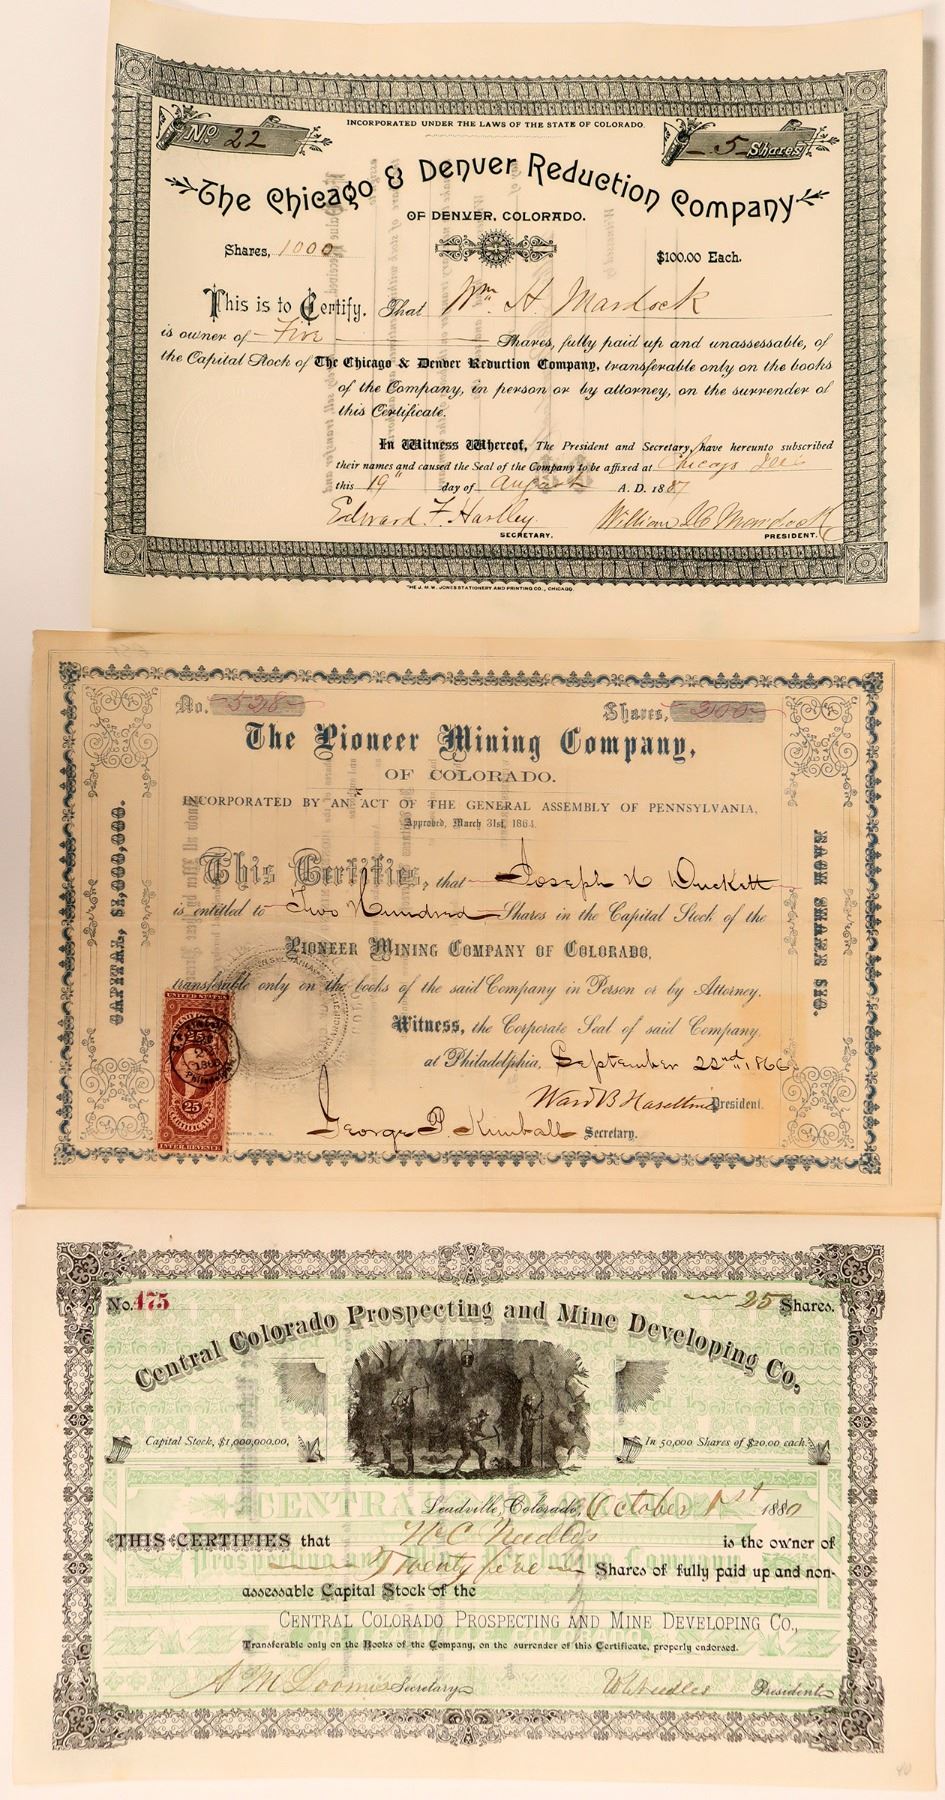 INCORPORATED UNDER THE LAWS OF THE STATE OF COLORADO.
No. 22
5 Shares
The Chicago & Denver Reduction Company
OF DENVER, COLORADO.
Shares, 1000
$100.00 Each.
This is to Certify, That Wm H. Mardock
is owner of Five Shares, fully paid up and unassessable, of
the Capital Stock of The Chicago & Denver Reduction Company, transferable only on the books
of the Company, in person or by attorney, on the surrender of
this Certificate.
In Witness Whereof, The President and Secretary have hereunto subscribed
their names and caused the Seal of the Company to be affixed at Chicago
this 19" day of August A. D. 1887
Edward F. Hartley.
SECRETARY. PRESIDENT.
THE J. M. W. JONES STATIONERY AND PRINTING CO., CHICAGO.
No. 528 Shares, 200
The Pioneer Mining Company,
OF COLORADO.
INCORPORATED BY AN ACT OF THE GENERAL ASSEMBLY OF PENNSYLVANIA,
Approved, March 31st, 1864.
CAPITAL, $1,000,000.
EACH SHARE $10.
This Certifies, that Joseph N Duckett
is entitled to Two Hundred Shares in the Capital Stock of the
PIONEER MINING COMPANY OF COLORADO,
transferable only on the books of the said Company in Person or by Attorney.
Witness, the Corporate Seal of said Company
at Philadelphia, September 22nd 1866
Ward B Haseltine President.
George P. Kimball Secretary.
UNITED STATES
25
CERTIFICATE
INTER. REVENUE
No. 475 25 Shares.
Central Colorado Prospecting and Mine Developing Co,
Capital Stock, $1,000,000.00, In 50,000 Shares of $20.00 each.
CENTRAL COLORADO
Prospecting and Mine Developing Company
Leadville, Colorado, October 1st 1880
THIS CERTIFIES that W C Needles is the owner of
Twenty five Shares of fully paid up and non-
assessable Capital Stock of the
CENTRAL COLORADO PROSPECTING AND MINE DEVELOPING CO.,
Transferable only on the Books of the Company, on the surrender of this Certificate, properly endorsed.
A M Loomis Secretary W C Needles President
40